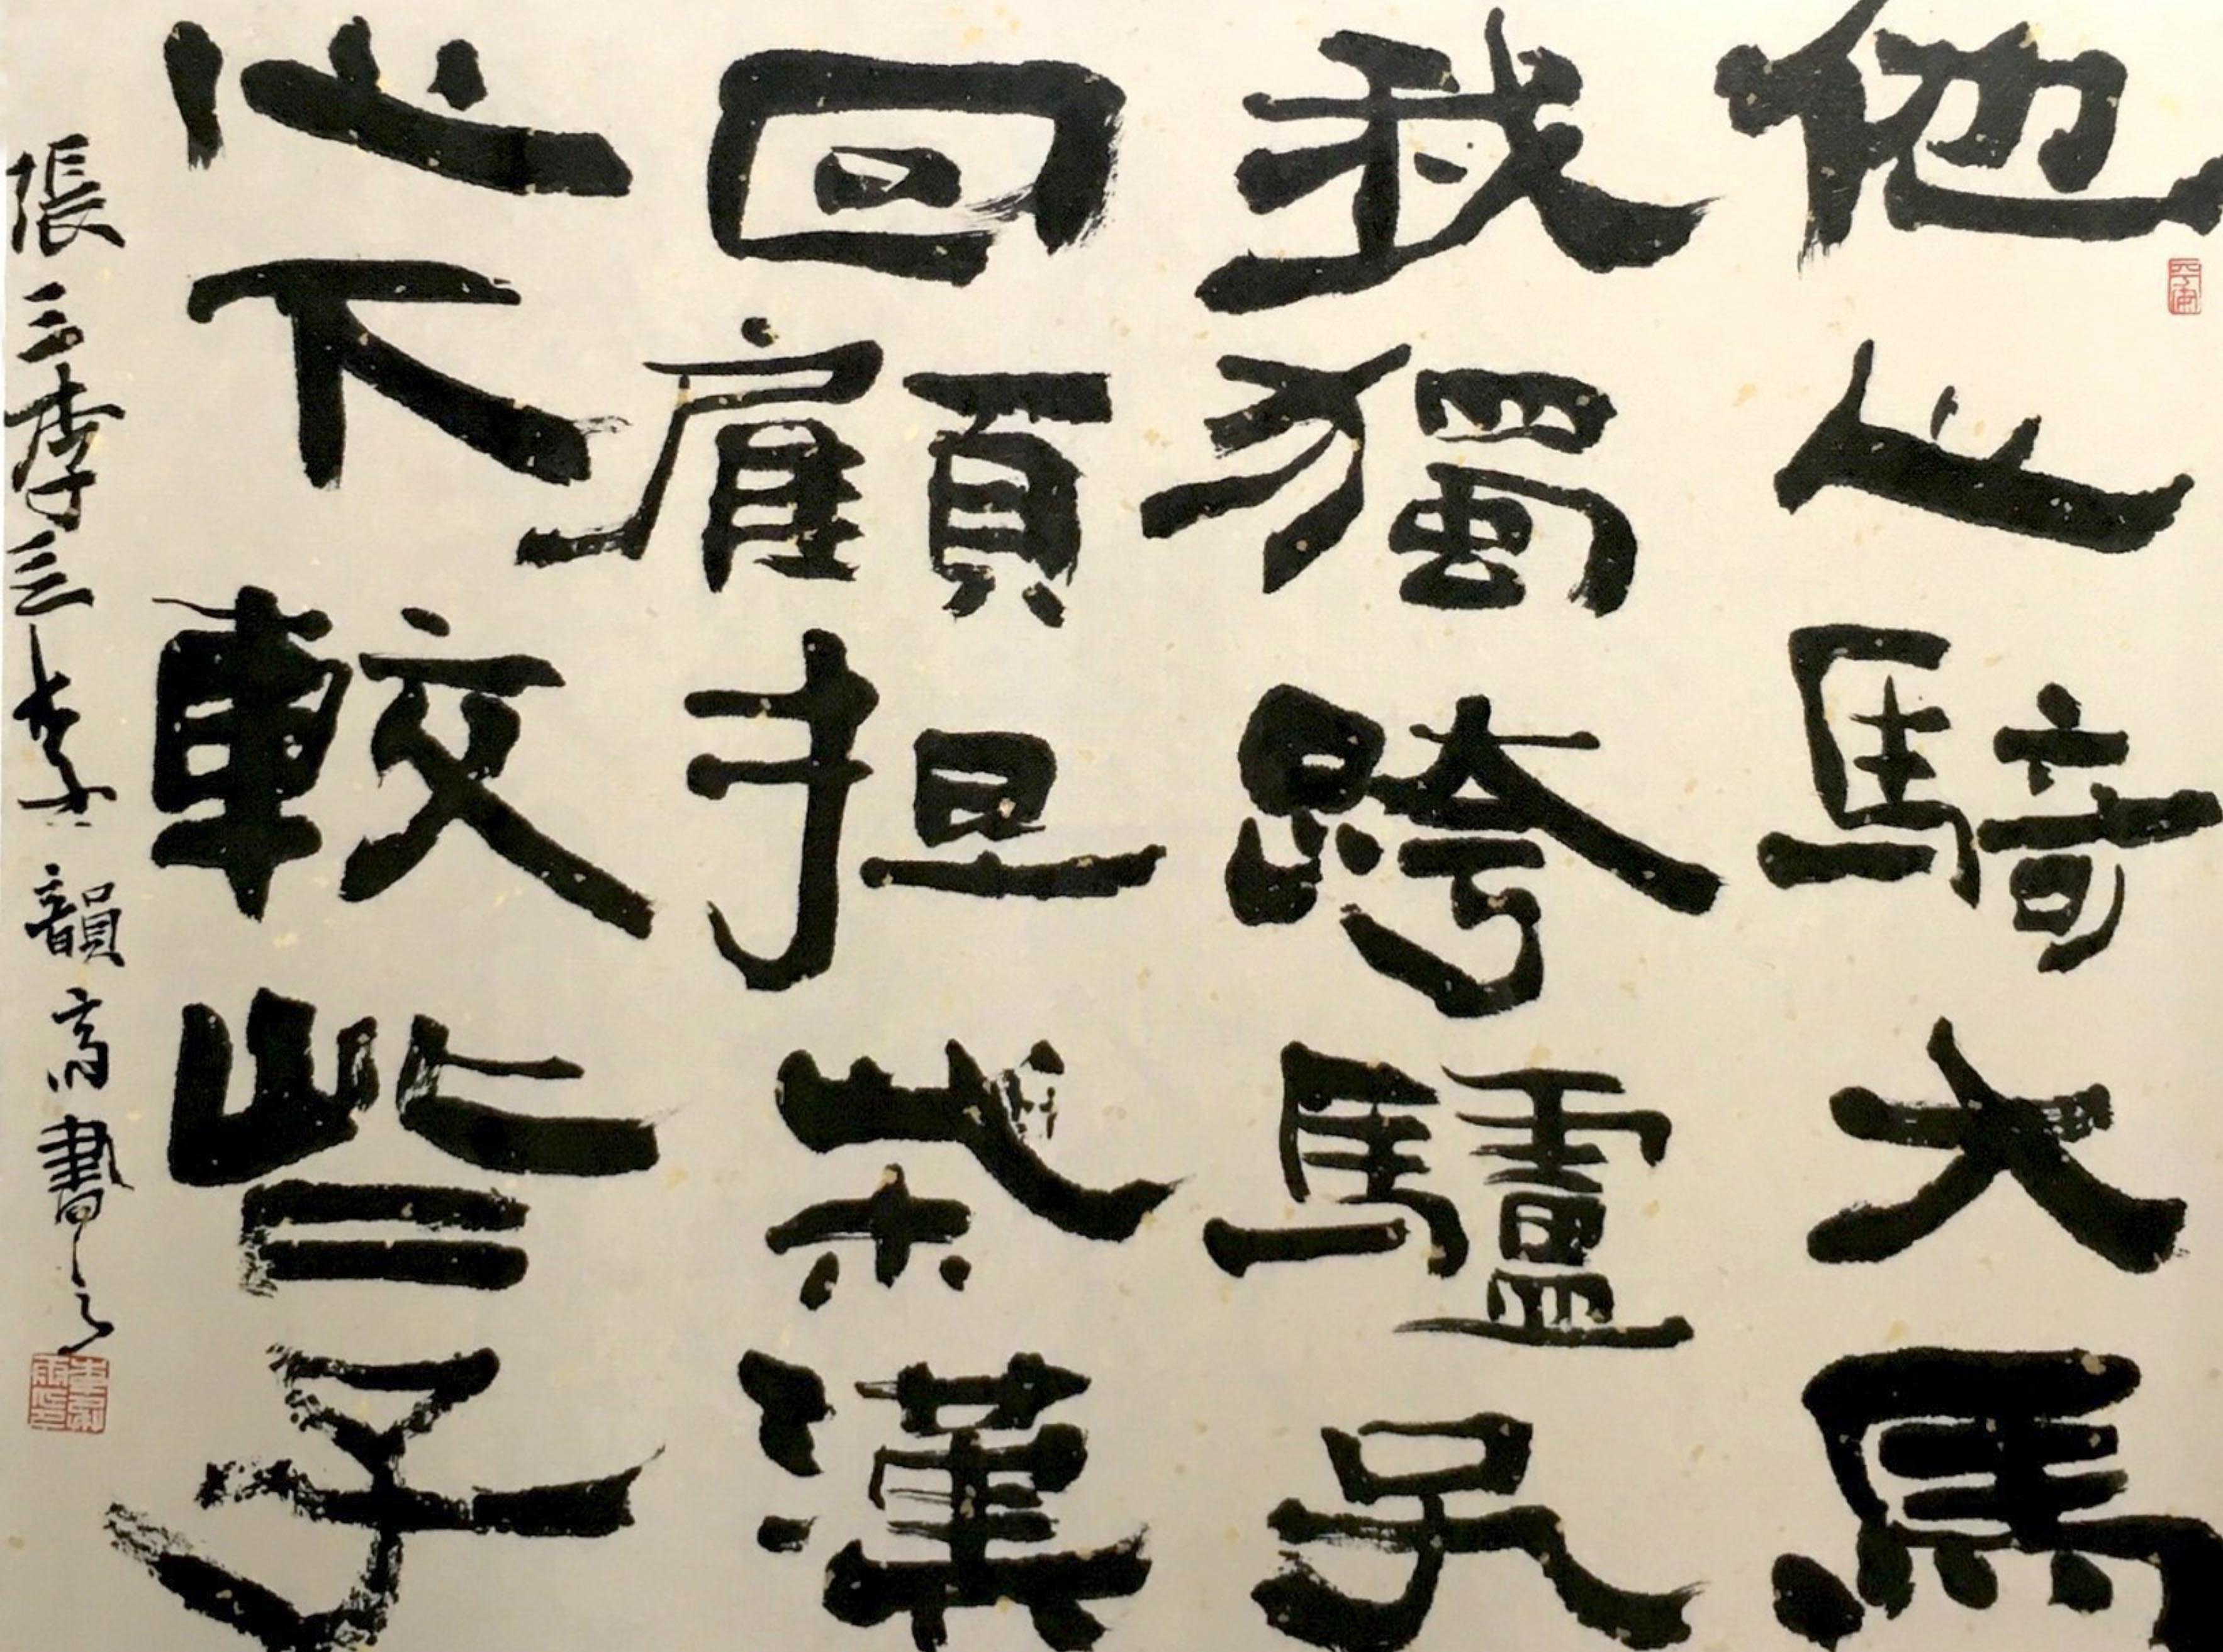 他人騎大馬
我獨跨驢子
回顧担柴漢
心下較些子
張三李三 書之